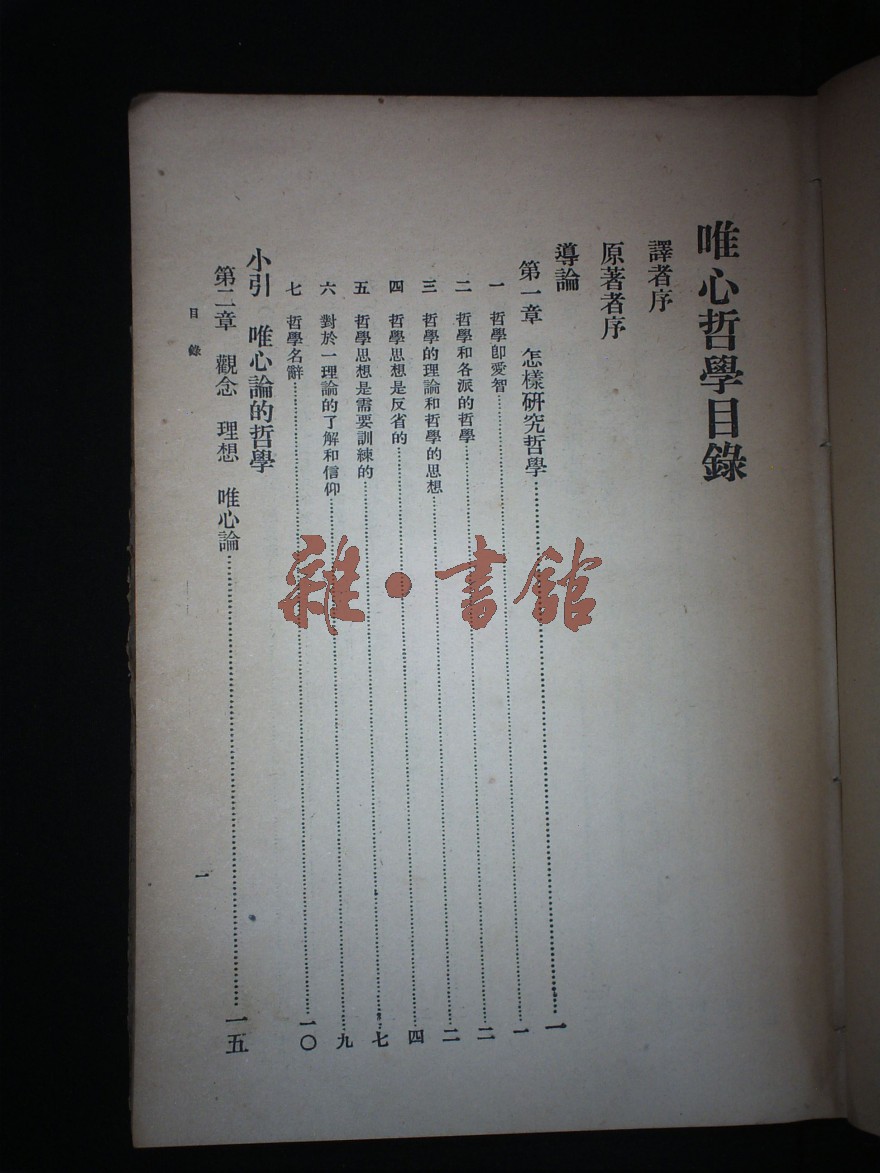 唯心哲學目錄
譯者序
原著者序
導論
第一章 怎樣研究哲學……一
一 哲學卽愛智……一
二 哲學和各派的哲學……二
三 哲學的理論和哲學的思想……二
四 哲學思想是反省的……四
五 哲學思想是需要訓練的……七
六 對於一理論的了解和信仰……九
七 哲學名辭……一〇
小引 唯心論的哲學
第二章 觀念 理想 唯心論……一五
目錄
一
雜·書館